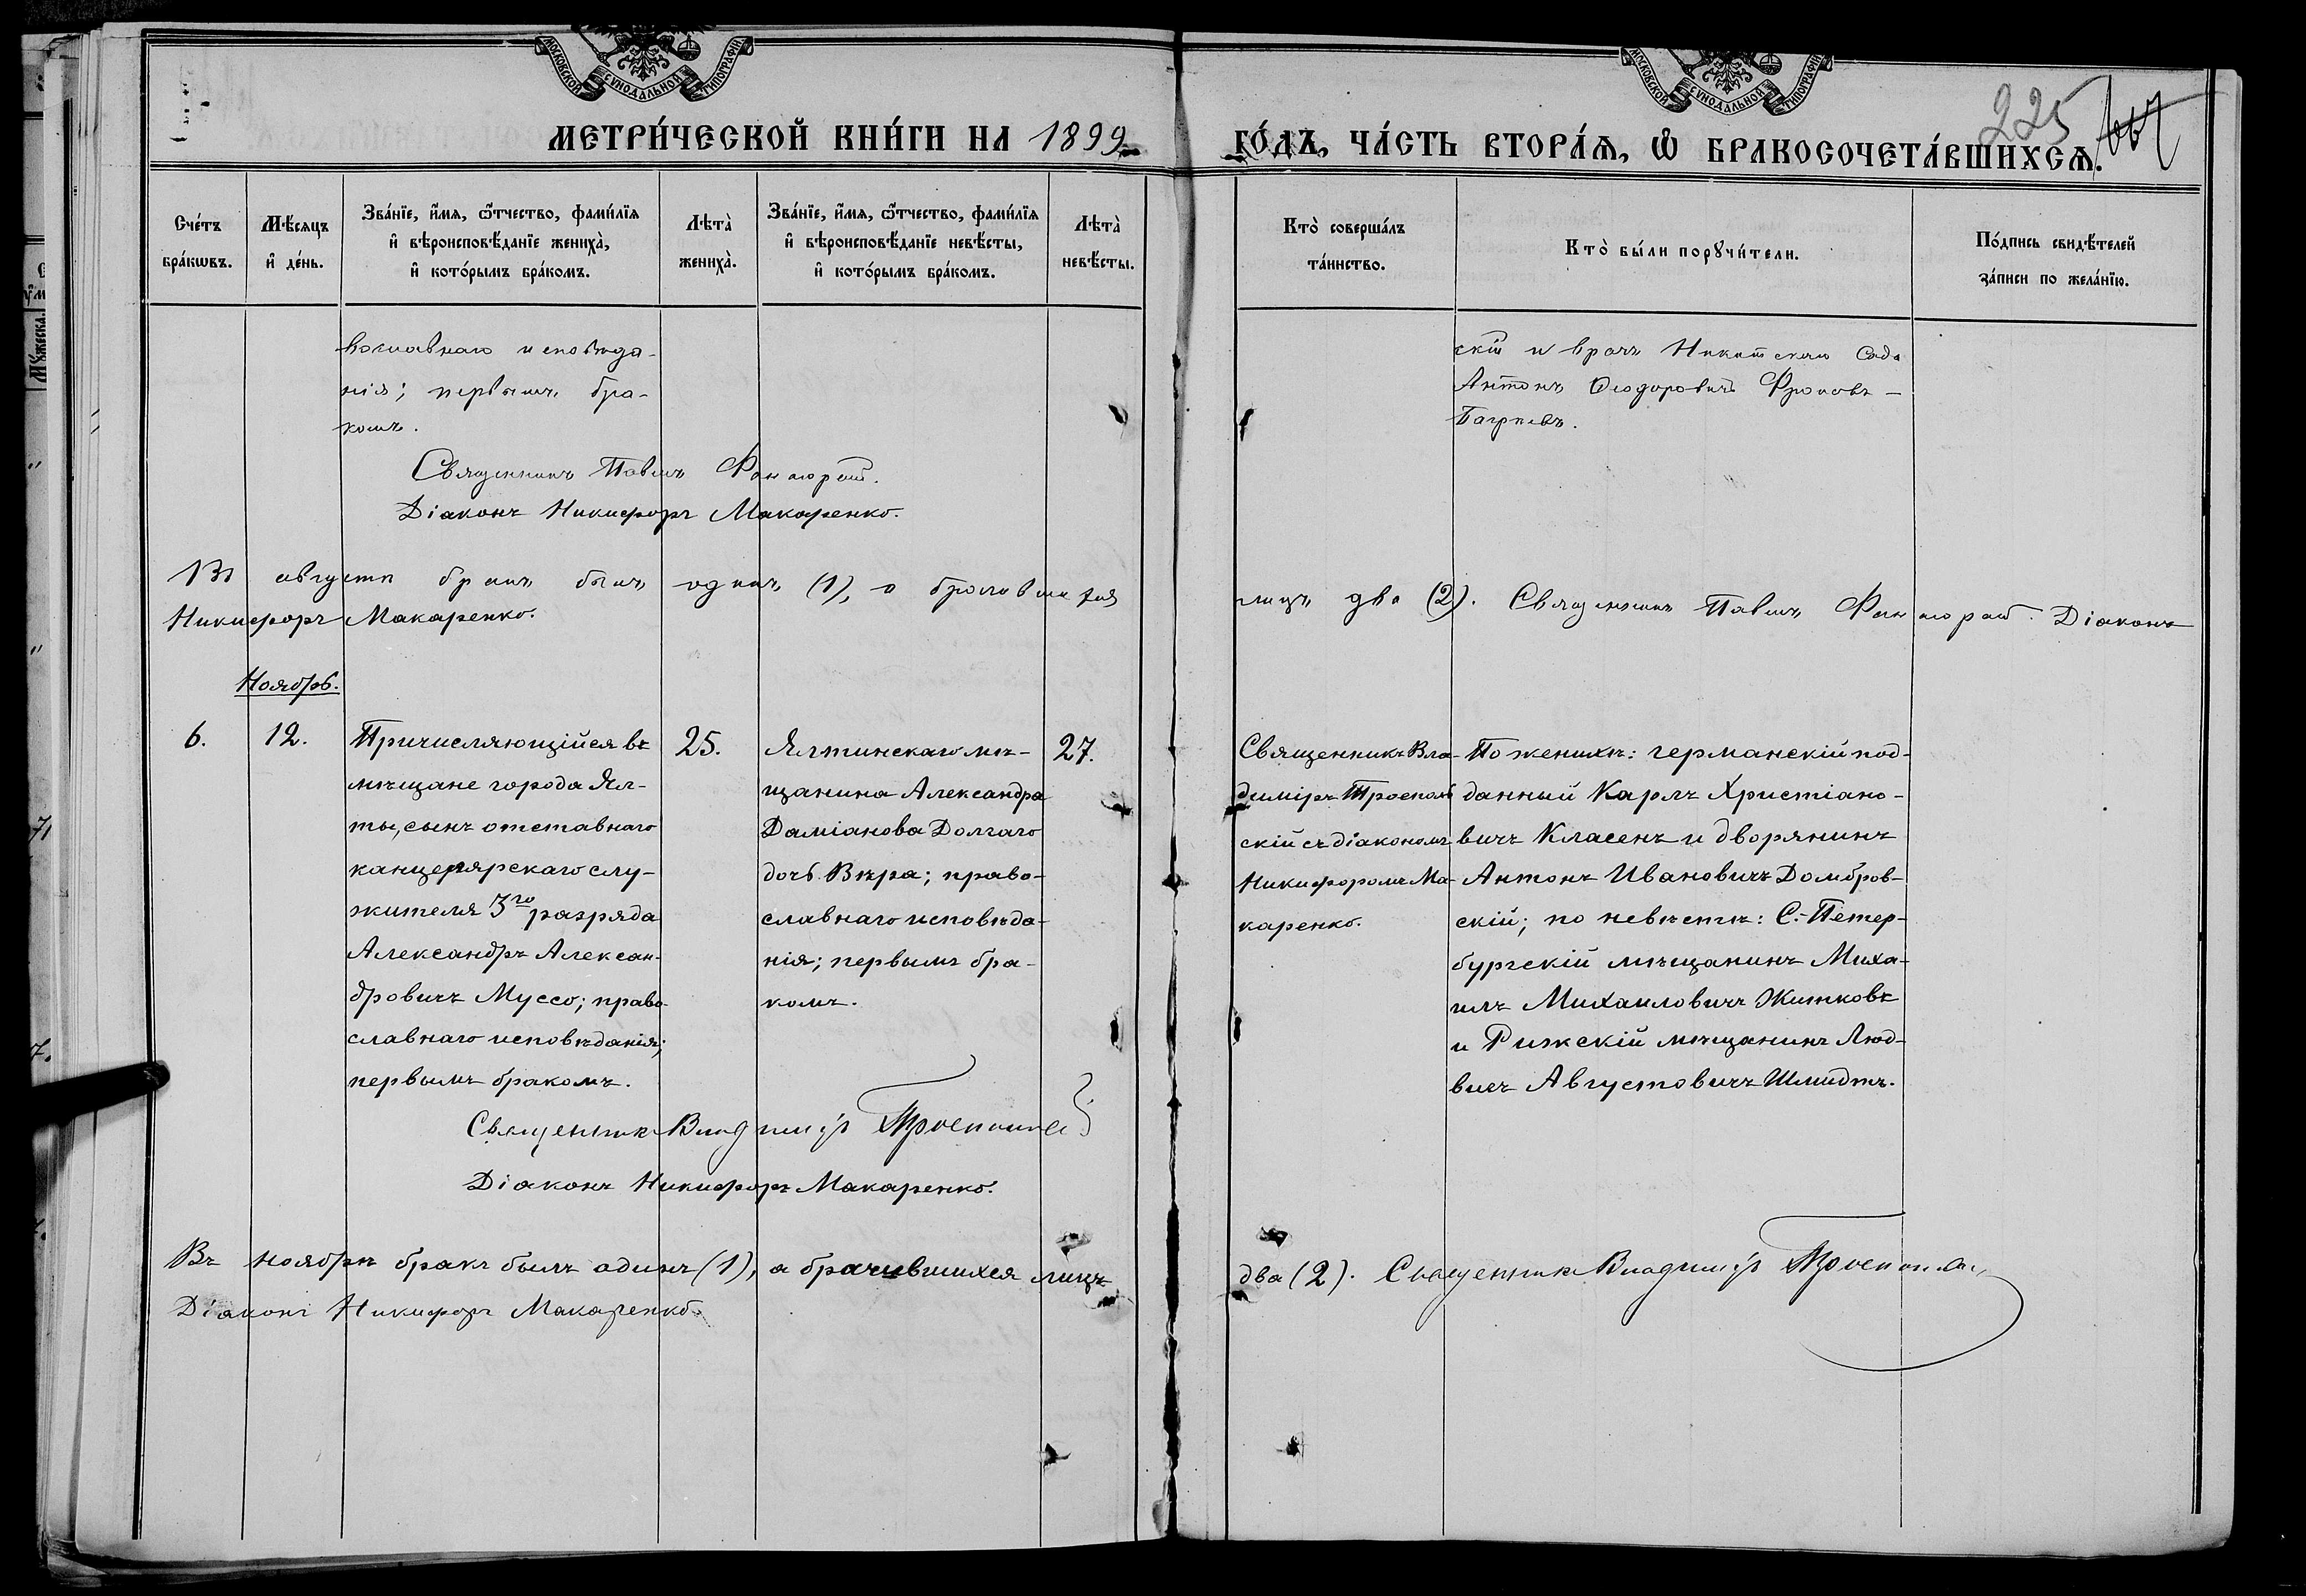 МОСКОВСКОЙ СУНОДАЛЬНОЙ ТИПОГРАФІИ
МОСКОВСКОЙ СУНОДАЛЬНОЙ ТИПОГРАФІИ
225
МЕТРИ́ЧЕСКОЙ КНИ́ГИ НА 1899
ГО́ДЪ, ЧА́СТЬ ВТОРА́Я, Ѡ БРАКОСОЧЕТА́ВШИХСЯ.
Сче́тъ бра́кѡвъ.
Мѣ́сяцъ и҆ де́нь.
Зва́нїе, и҆́мя, ѻ҆́тчество, фами́лїя и҆ вѣроисповѣ́данїе жениха̀, и҆ кото́рымъ бра́комъ.
Лѣта̀ жениха̀.
Зва́нїе, и҆́мя, ѻ҆́тчество, фами́лїя и҆ вѣроисповѣ́данїе невѣ́сты, и҆ кото́рымъ бра́комъ.
Лѣта̀ невѣ́сты.
Кто̀ соверша́лъ та́инство.
Кто̀ бы́ли порꙋчи́тели.
По́дпись свидѣ́телей за́писи по жела́нїю.
вославнаго исповѣда-
нія; первымъ бра-
комъ.
скій и врачъ Никитскаго Сада
Антонъ Ѳеодоровичъ
Священникъ Павелъ
Діаконъ Никифоръ Макаренко.
Въ августѣ бракъ былъ одинъ (1), а брачившихся
лицъ два (2). Священникъ Павелъ Діаконъ
Никифоръ Макаренко.
Ноябрь.
6.
12.
Причисляющійся въ
мѣщане города Ял-
ты, сынъ отставнаго
канцелярскаго слу-
жителя 3го разряда
Александръ Алексан-
дровичъ Муссо; право-
славнаго исповѣданія;
первымъ бракомъ.
25.
Ялтинскаго мѣ-
щанина Александра
Даміанова Долгаго
дочь Вѣра; право-
славнаго исповѣда-
нія; первымъ бра-
комъ.
27.
Священникъ Вла-
диміръ Троеполь
скій съ діакономъ
Никифоромъ Ма-
каренко.
По женихѣ: германскій под-
данный Карлъ Христіано-
вичъ Класенъ и дворянинъ
Антонъ Ивановичъ Домбров-
скій; по невѣстѣ: С.-Петер-
бургскій мѣщанинъ Миха-
илъ Михаиловичъ Житковъ
и Рижскій мѣщанинъ Люд-
вигъ Августовичъ Шмидтъ.
Священникъ Владиміръ Троепольскій
Діаконъ Никифоръ Макаренко.
Въ ноябрѣ бракъ былъ одинъ (1), а брачившихся лицъ
два (2). Священникъ Владиміръ Троепольскій
Діаконъ Никифоръ Макаренко.